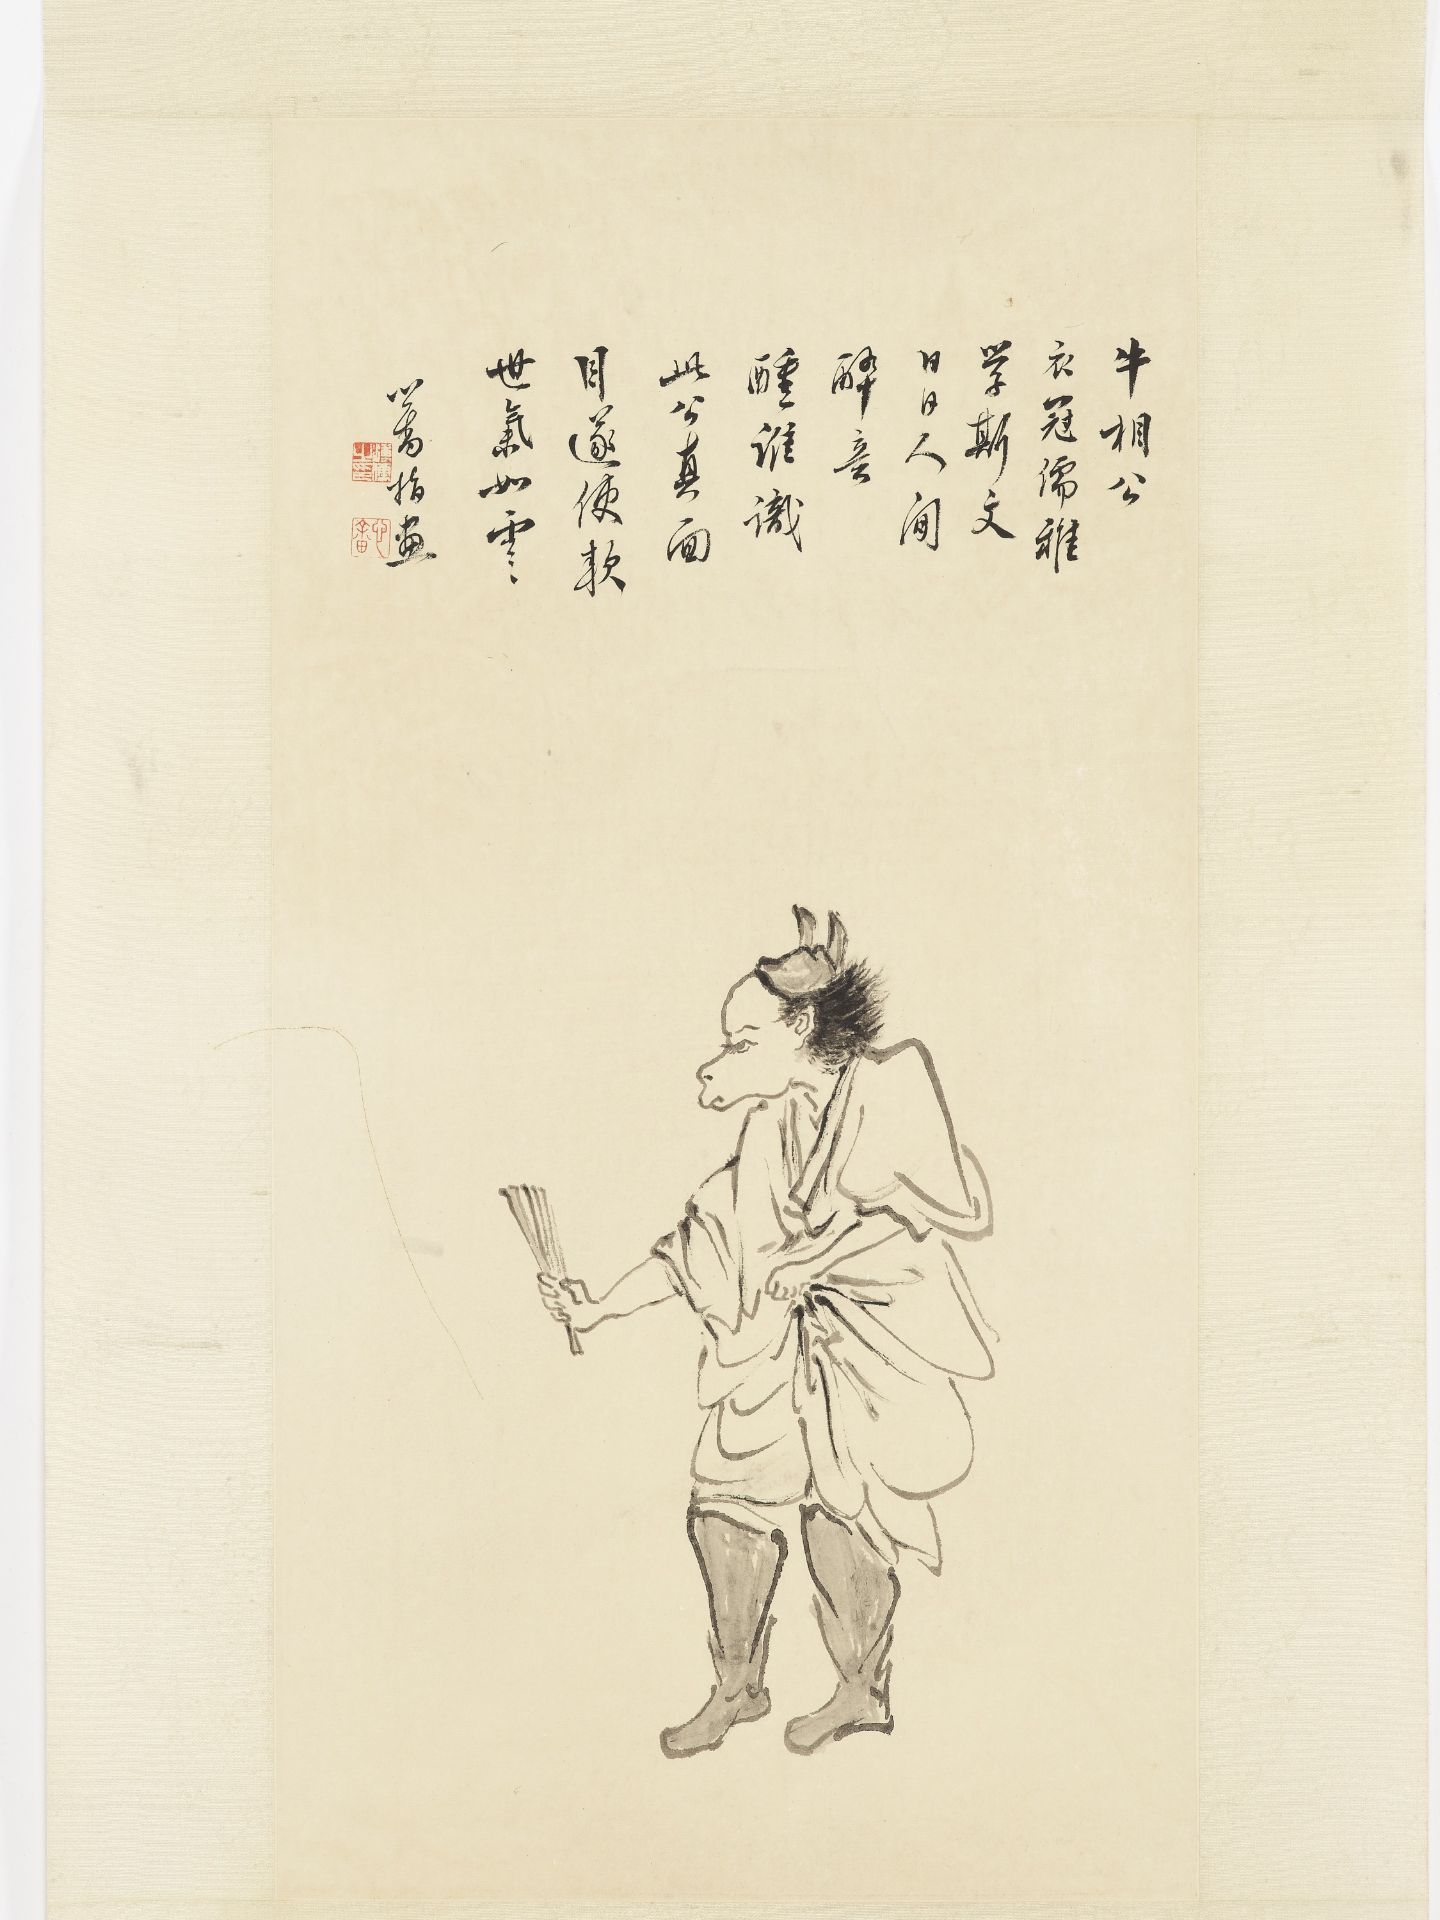 牛相公
衣冠儒雅
学斯文
日日人間
醉意
醺誰識
此公真面
目遂使欺
世氣如雲
心畬指畫
心畬